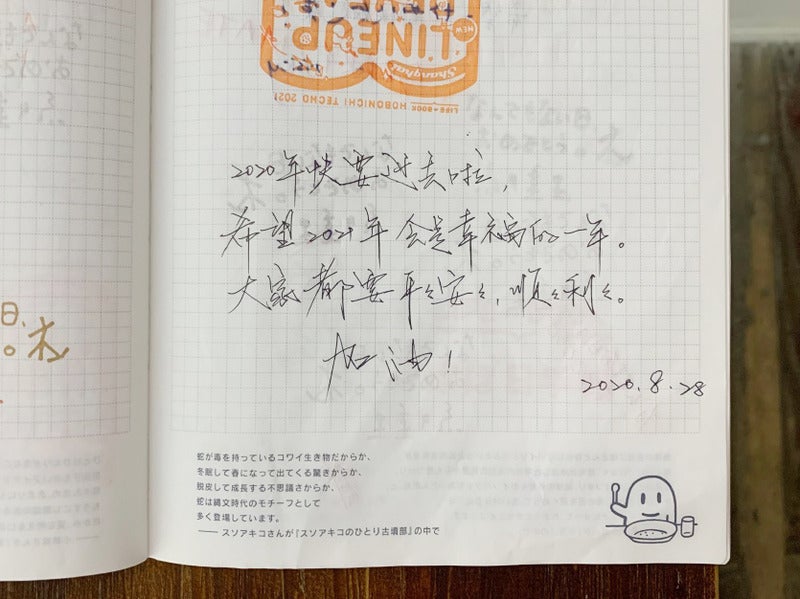 LINEUP
NEW
Shanghai
HOBONICHI TECHO 2021
2020年快要过去啦,
希望2021年会是幸福的一年。
大家都要平々安々,顺々利々。
加油!
2020.8.28
蛇が毒を持っているコワイ生き物だからか、
冬眠して春になって出てくる驚きからか、
脱皮して成長する不思議さからか、
蛇は縄文時代のモチーフとして
多く登場しています。
—— スソアキコさんが『スソアキコのひとり古墳部』の中で